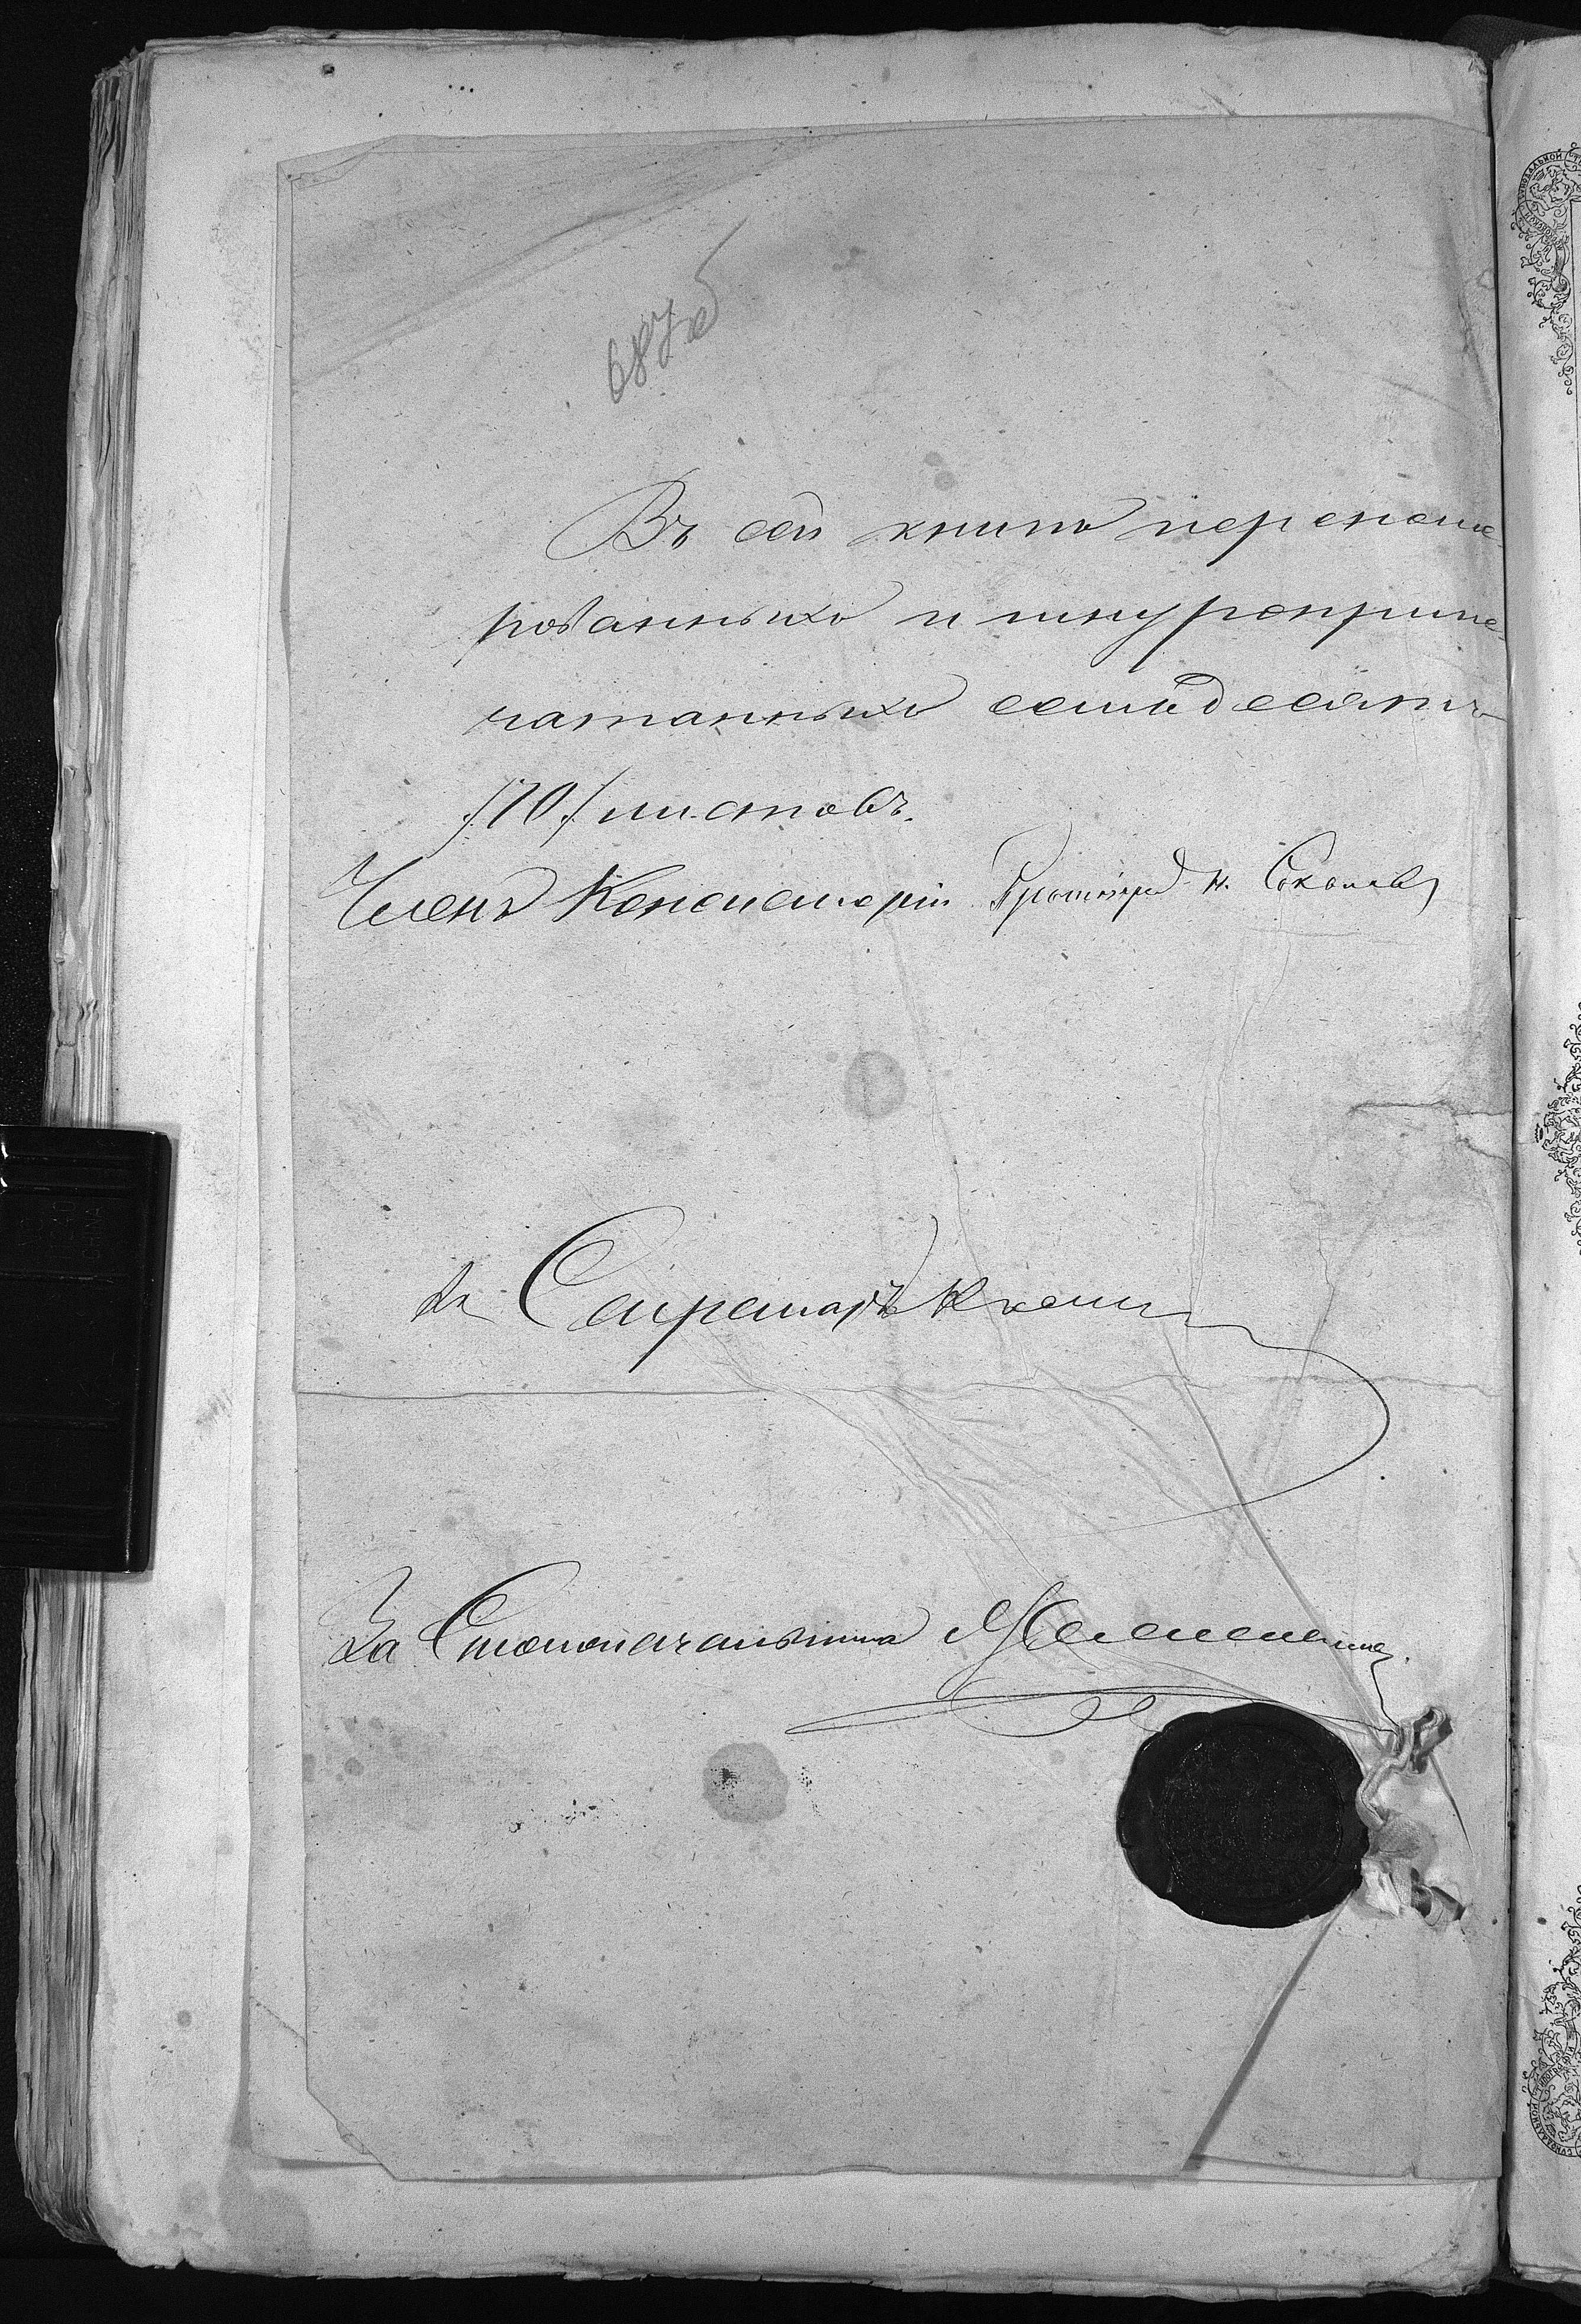 687об
Въ сей книгѣ перенуме-
рованныхъ и шнуропри­пе-
чатанныхъ семьдесятъ
/70/ листовъ.
Членъ Консисторіи Протоіерей Н. Соколовъ
За Секретарь
За Столоначальника